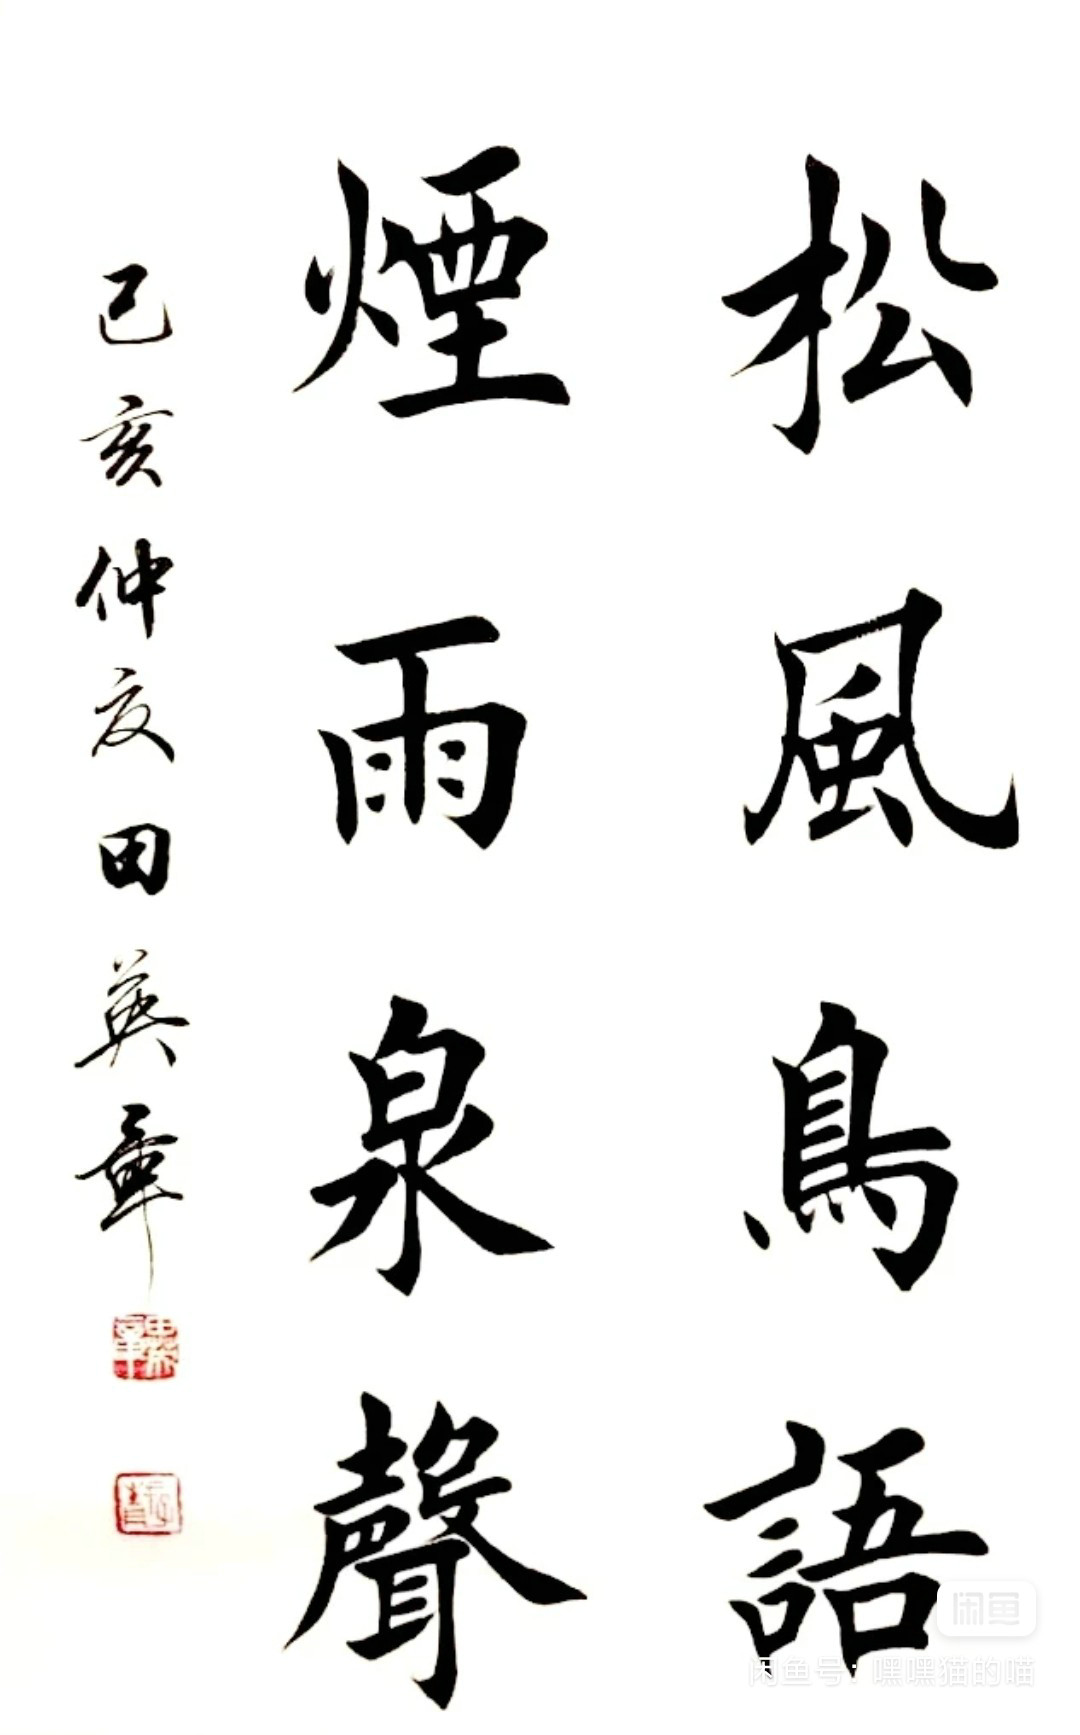 松風鳥語
煙雨泉聲
己亥仲夏田英章
闲鱼
闲鱼号：嘿嘿猫的喵